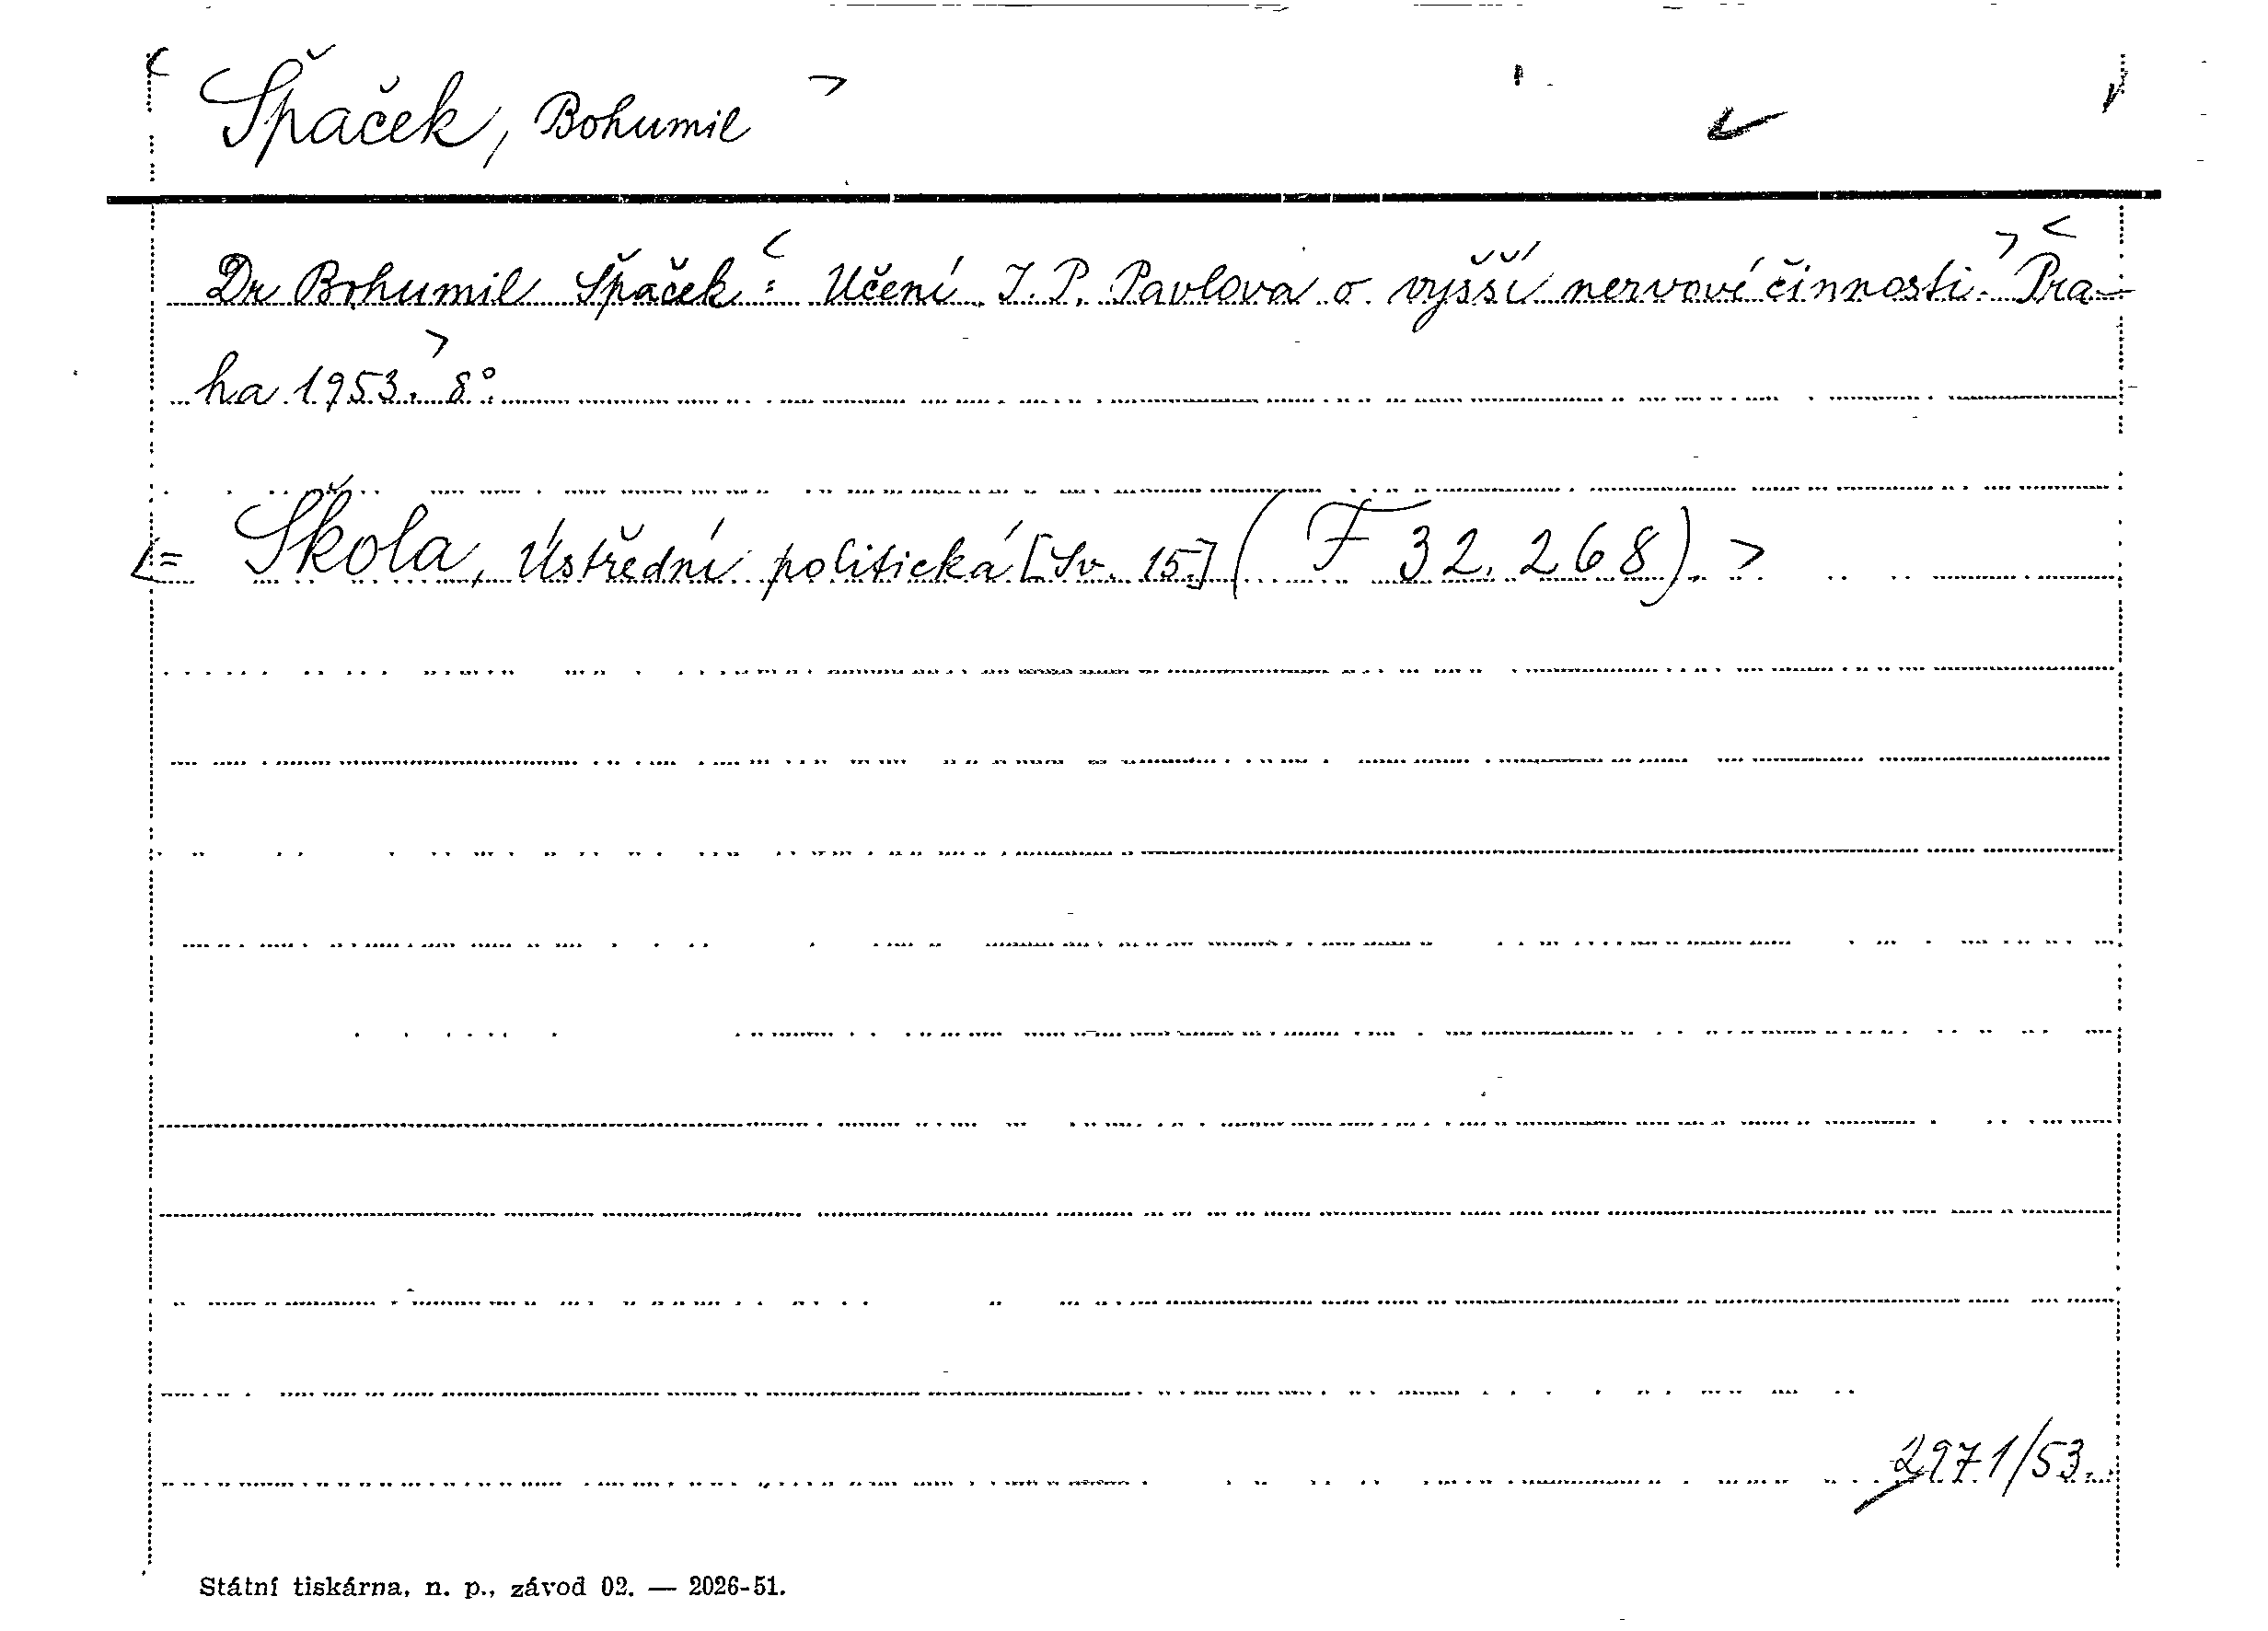 < Špaček, Bohumil >
Dr Bohumil Špaček: < Učení I. P. Pavlova o vyšší nervové činnosti. > < Pra-
ha 1953. > 8°.
<= Škola, Ústřední politická [Sv. 15.] (F 32.268). >
2971/53.
Státní tiskárna, n. p., závod 02. — 2026-51.